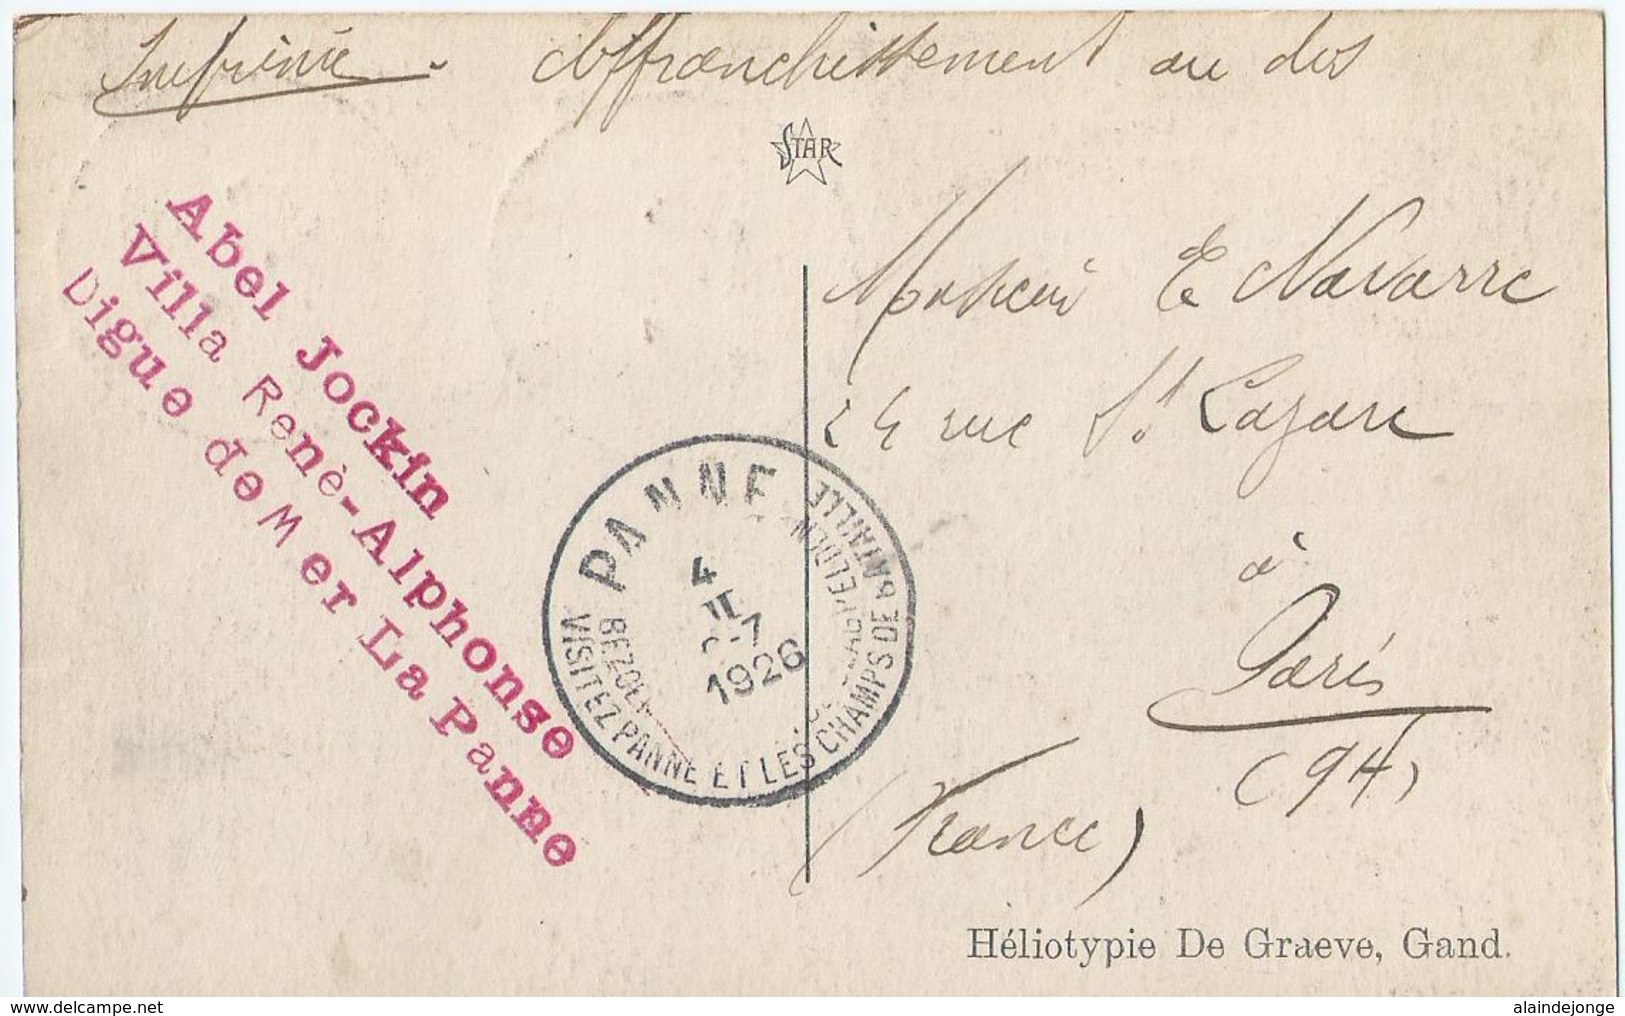 Imprimé. Affranchissement au dos
STAR
Abel Jockin
Villa Renè-Alphonse
Digue de Mer La Panne
Monsieur E Navarre
24 rue St Lazare
à
Paris
(9H)
(France)
PANNE
4
II
-7
1926
VISITEZ PANNE ET LES CHAMPS DE BATAILLE
Héliotypie De Graeve, Gand.
www.delcampe.net
alaindejonge